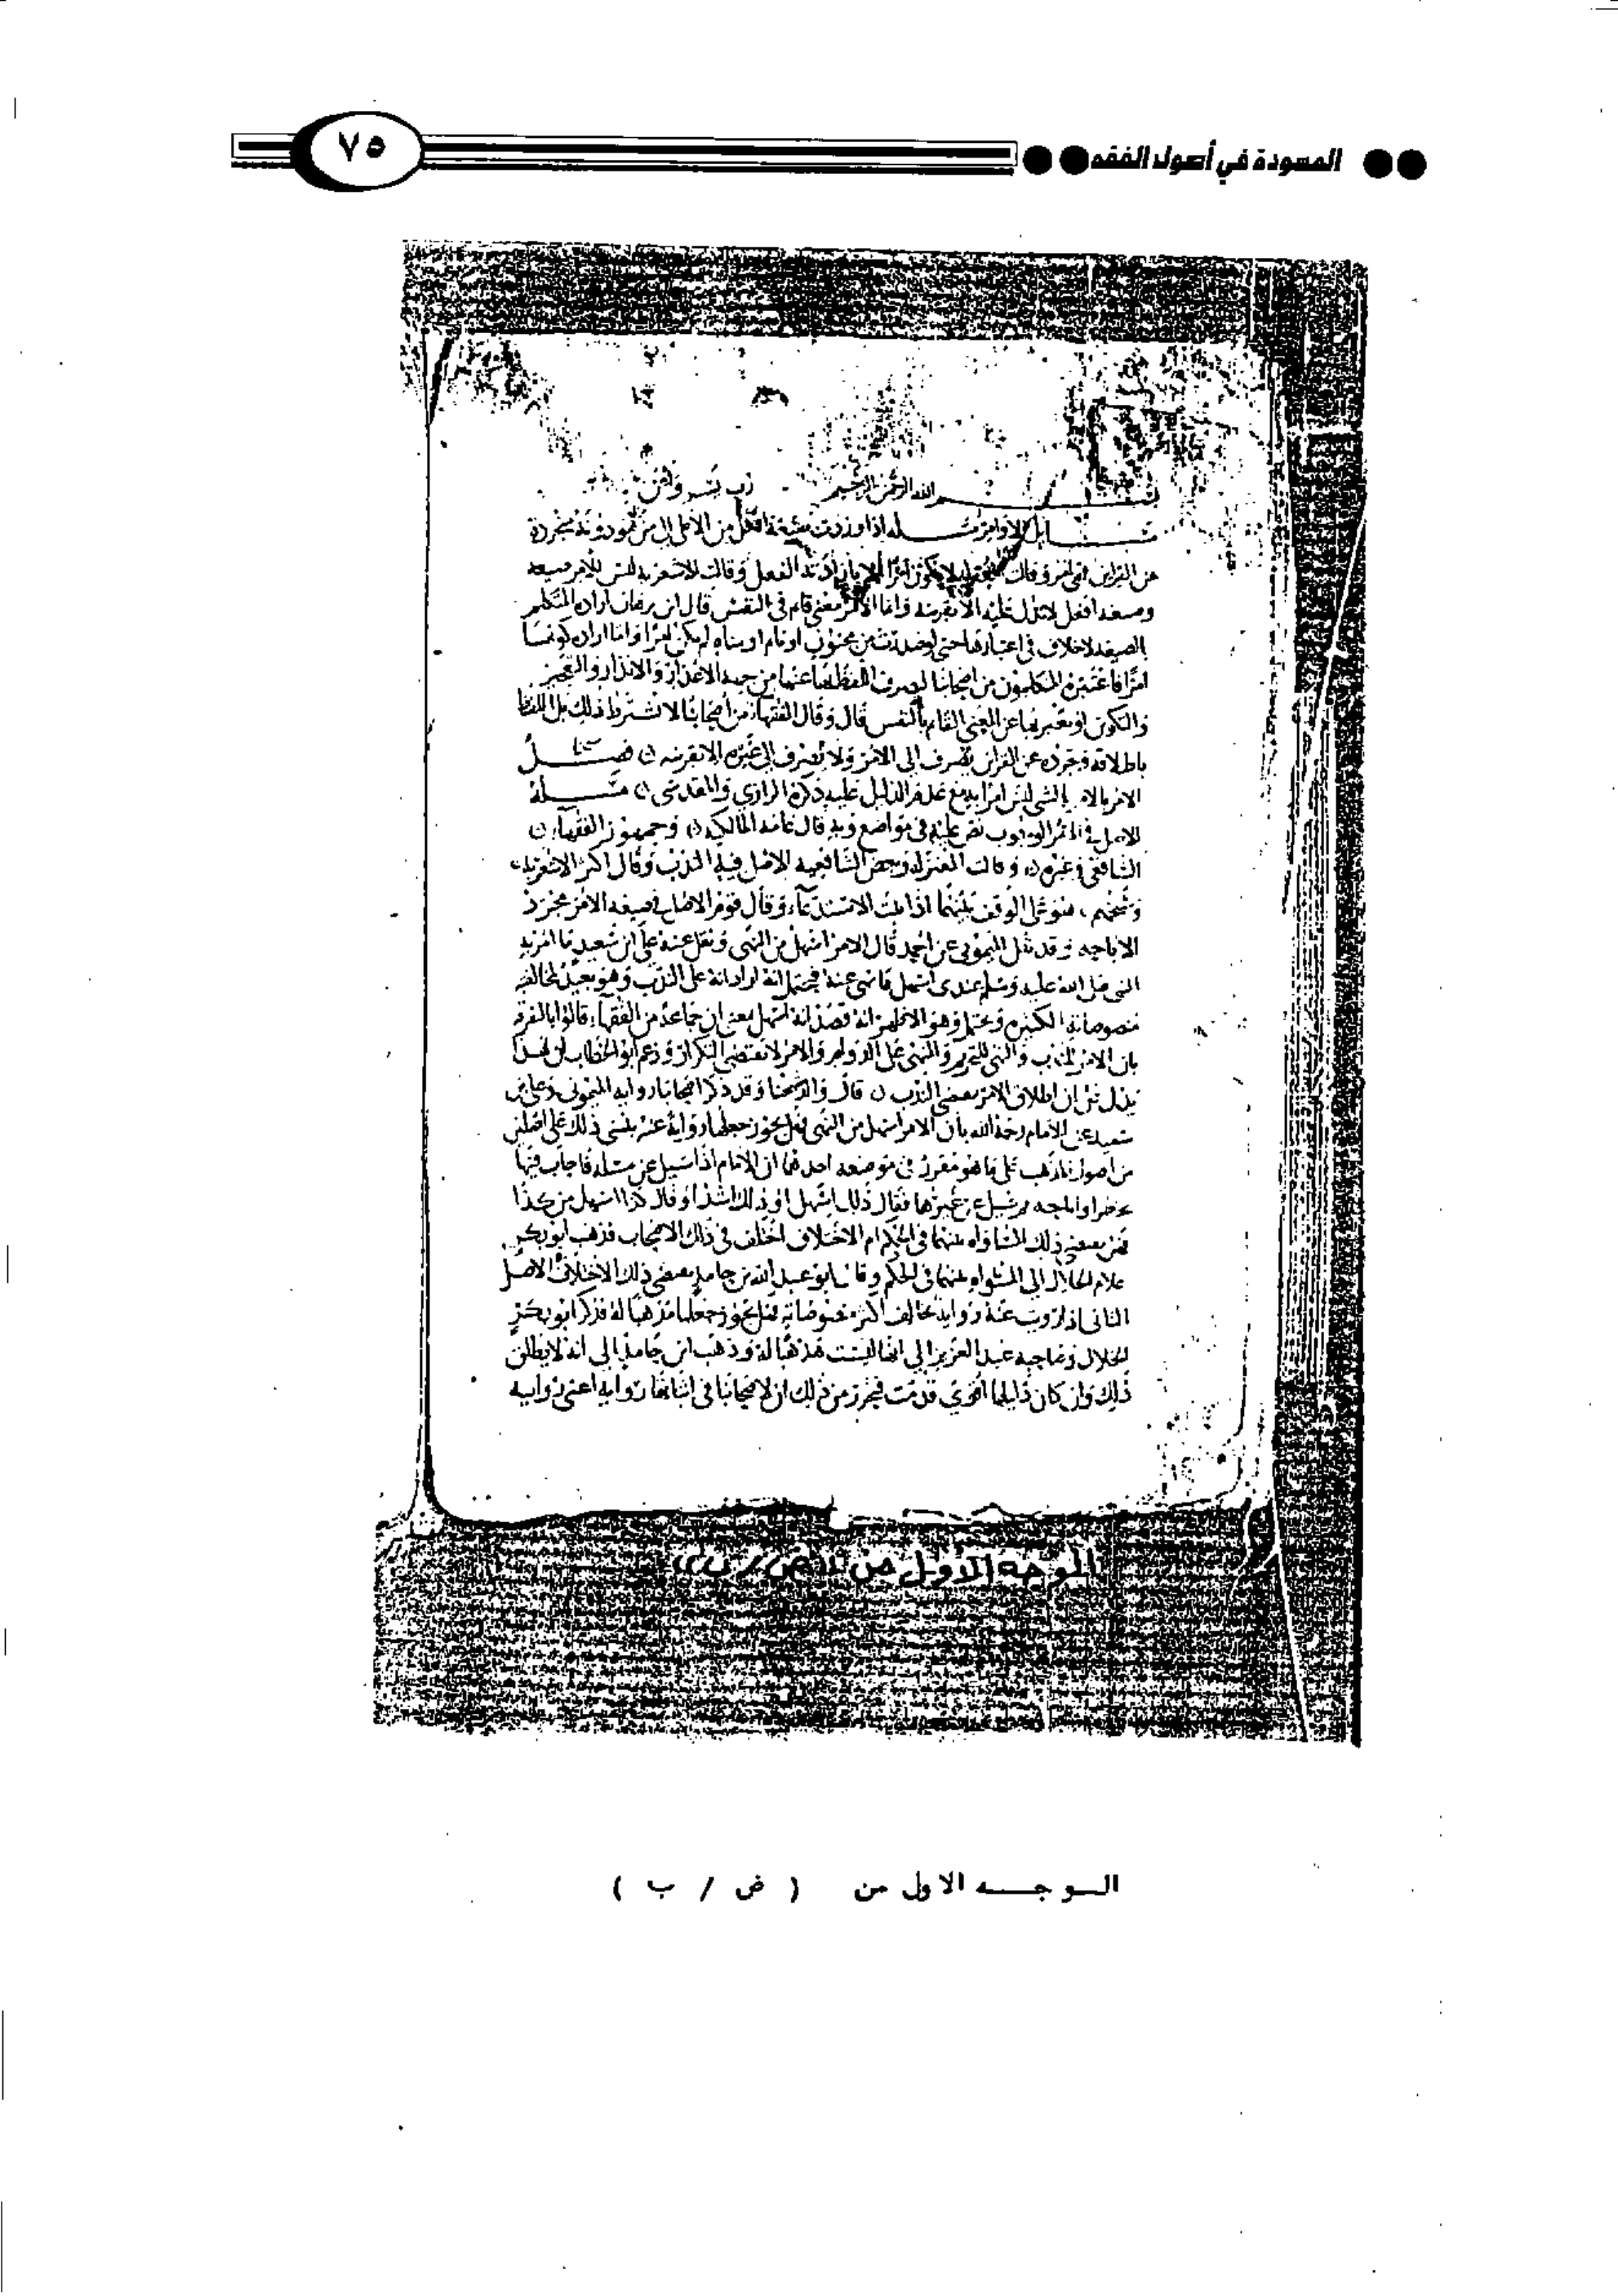 المسودة في أصول الفقه
٧٥
الله الرحمن الرحيم رب يسر واعن
مسايل الاوامر مسله اذا وردت صيغة افعل من الاعلى الى من هو دونه متجردة
عن القراين فهي امر وقالت المعتزله لا يكون امرا الا بارادته الفعل وقالت الاشعريه ليس للامر صيغه
وصيغه افعل لا تدل عليه الا بقرينه وانما الامر معنى قام في النفس قال ابن برهان اراده المتكلم
الصيغه لا خلاف في اعتبارها حتى لو صدرت من مجنون او نائم او ساه لم يكن امرا واما اراده كونها
امرا فاعتبره المتكلمون من اصحابنا لصرف اللفظ عنها من جهه الاعذار والانذار والتعجيز
والتكوين او معبر بها عن المعنى القايم بالنفس قال وقال الفقهاء من اصحابنا لا تشترط ذلك بل اللفظ
باطلاقه وتجرده عن القراين تصرف الى الامر ولا تصرف الى غيره الا بقرينه فصل
الامر بالامر بالشي ليس امرا به مع عدم الدليل عليه ذكره الرازي والمقدسي مسلة
الاصل في الامر الوجوب نص عليه في مواضع وبه قال عامه المالكيه وجمهور الفقهاء
الشافعي وغيره وقالت المعتزله وبعض الشافعيه الاصل فيه الندب وقال اكثر الاشعريه
هو على الوقف بينهما اذا ثبت الاستدعاء وقال قوم الاصل في صيغه الامر مجرد
الاباحه وقد نقل الميموني عن احمد قال الامر اسهل من النهي ونقل عنه علي بن سعيد ما امر به
النبي صلى الله عليه وسلم عندي اسهل مما نهى عنه فيحتمل انه اراد انه على الندب وهو بعيد لمخالفه
منصوصاته الكثيره ويحتمل وهو الاظهر انه قصد انه اسهل بمعنى ان جماعة من الفقهاء قالوا بالفرق
بان الامر للندب والنهي للتحريم والنهي على الدوام والامر لا يقتضي التكرار وزعم ابو الخطاب ان هذا
يدل على ان اطلاق الامر يقتضي الندب قال والد شيخنا وقد ذكر اصحابنا رواية الميموني وعلي بن
سعيد عن الامام رحمة الله بان الامر اسهل من النهي فهل يجوز جعلها رواية عنه ينبني ذلك على اصلين
من اصول المذهب على ما هو مقرر في موضعه احدهما ان الامام اذا سيل عن مسله فاجاب فيها
بحظر او اباحه ثم سيل عن غيرها فقال ذلك اسهل او ذلك اشد او قال كذا اسهل من كذا
فهل يقتضي ذلك المساواه بينهما في الحكم ام الاختلاف اختلف في ذلك الاصحاب فذهب ابو بكر
غلام الخلال الى المساواه بينهما في الحكم وقال ابو عبد الله بن حامد يقتضي ذلك الاختلاف الاصل
الثاني اذا رويت عنه رواية تخالف اكثر منصوصاته فهل يجوز جعلها مذهبا له فذكر ابو بكر
الخلال وصاحبه عبد العزيز الى انها ليست مذهبا له وذهب ابن حامد الى انه لا يطلق
ذلك وان كان دليلها اقوى قدمت فتحرر من ذلك ان لاصحابنا في اثباتها رواية اعني رواية
الوجه الأول من ((ض/ب))
الوجه الاول من ( ض / ب )